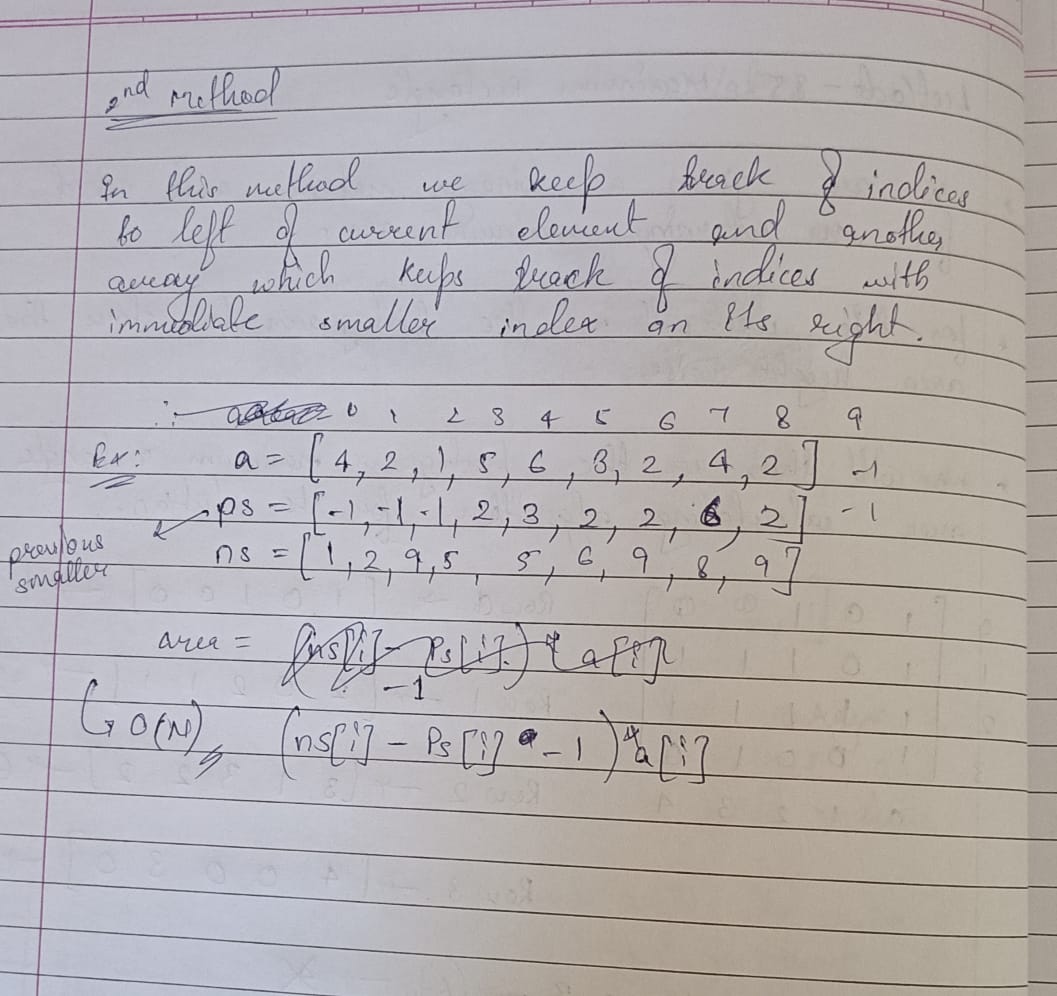 2nd method
In this method we keep track of indices
to left of current element and another
array which keeps track of indices with
immediate smaller index on its right.
0 1 2 3 4 5 6 7 8 9
Ex: a = [4, 2, 1, 5, 6, 3, 2, 4, 2] -1
ps = [-1, -1, -1, 2, 3, 2, 2, 6, 2] -1
previous
smaller
ns = [1, 2, 9, 5, 5, 6, 9, 8, 9]
area = (ns[i] - Ps[i]) * a[i]
-1
↳ O(N) (ns[i] - Ps[i] - 1) * a[i]